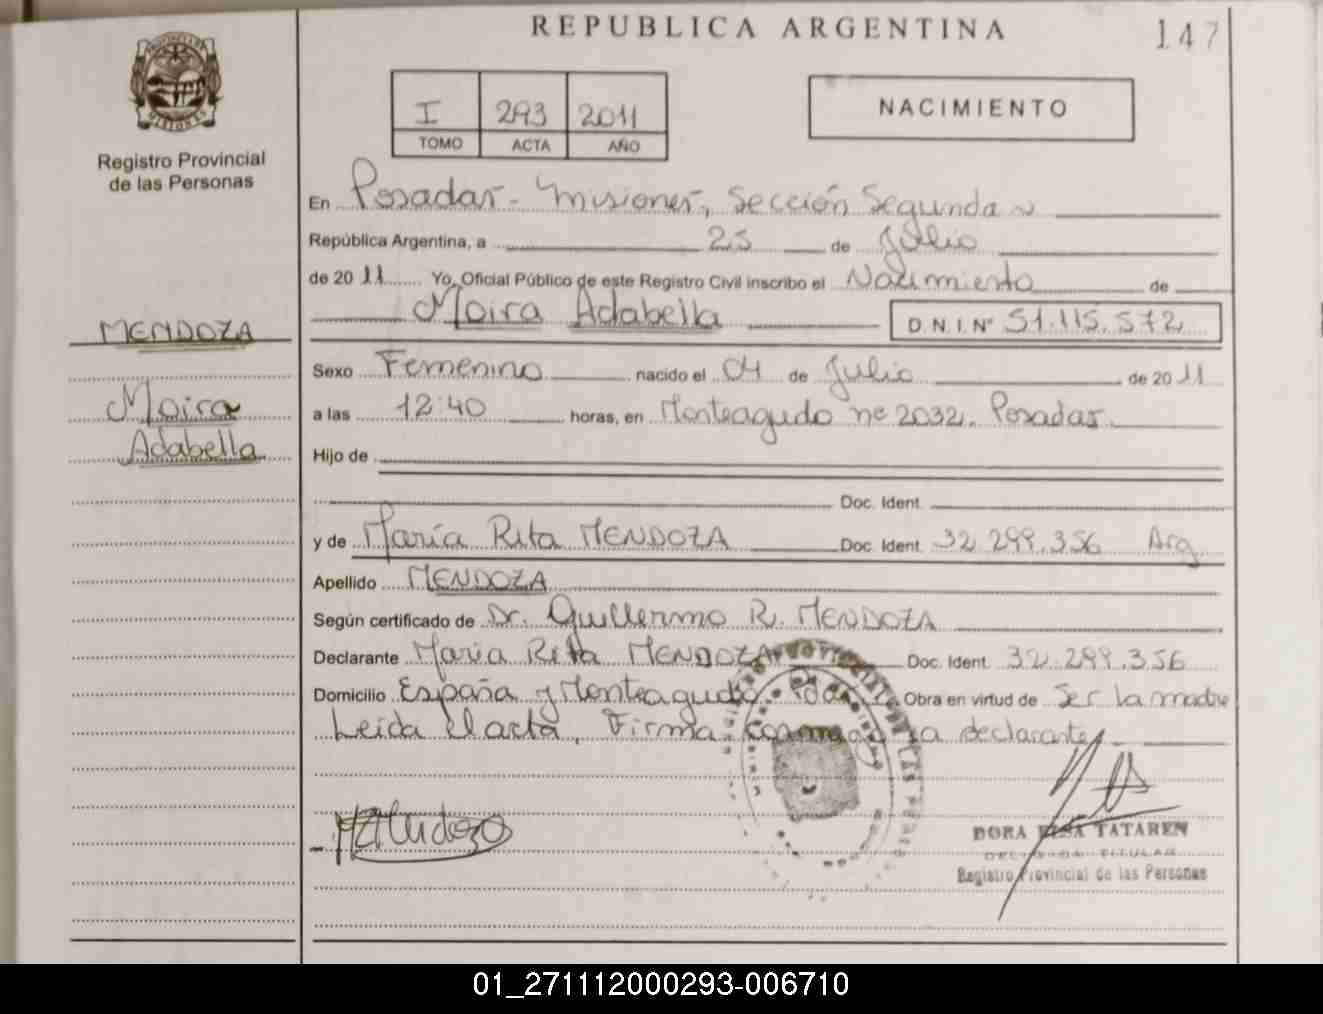 REPUBLICA ARGENTINA
147
PROVINCIA DE
MISIONES
Registro Provincial
de las Personas
I 293 2011
TOMO ACTA AÑO
NACIMIENTO
En Posadas - Misiones, Sección Segunda
República Argentina, a 25 de Julio
de 2011 Yo, Oficial Público de este Registro Civil inscribo el Nacimiento de
Moira Adabella D.N.I. Nº 51.115.572
MENDOZA
Moira
Adabella
Sexo Femenino nacido el 04 de Julio de 2011
a las 12:40 horas, en Monteagudo nº 2032. Posadas.
Hijo de
Doc. Ident.
y de María Rita MENDOZA Doc. Ident. 32.299.356 Arg.
Apellido MENDOZA
Según certificado de Dr. Guillermo R. MENDOZA
Declarante María Rita MENDOZA Doc. Ident. 32.299.356
Domicilio España y Monteagudo. Obra en virtud de Ser la madre
Leida el acta, Firma la declarante
DORA TATAREN
TITULAR
Registro Provincial de las Personas
01_271112000293-006710